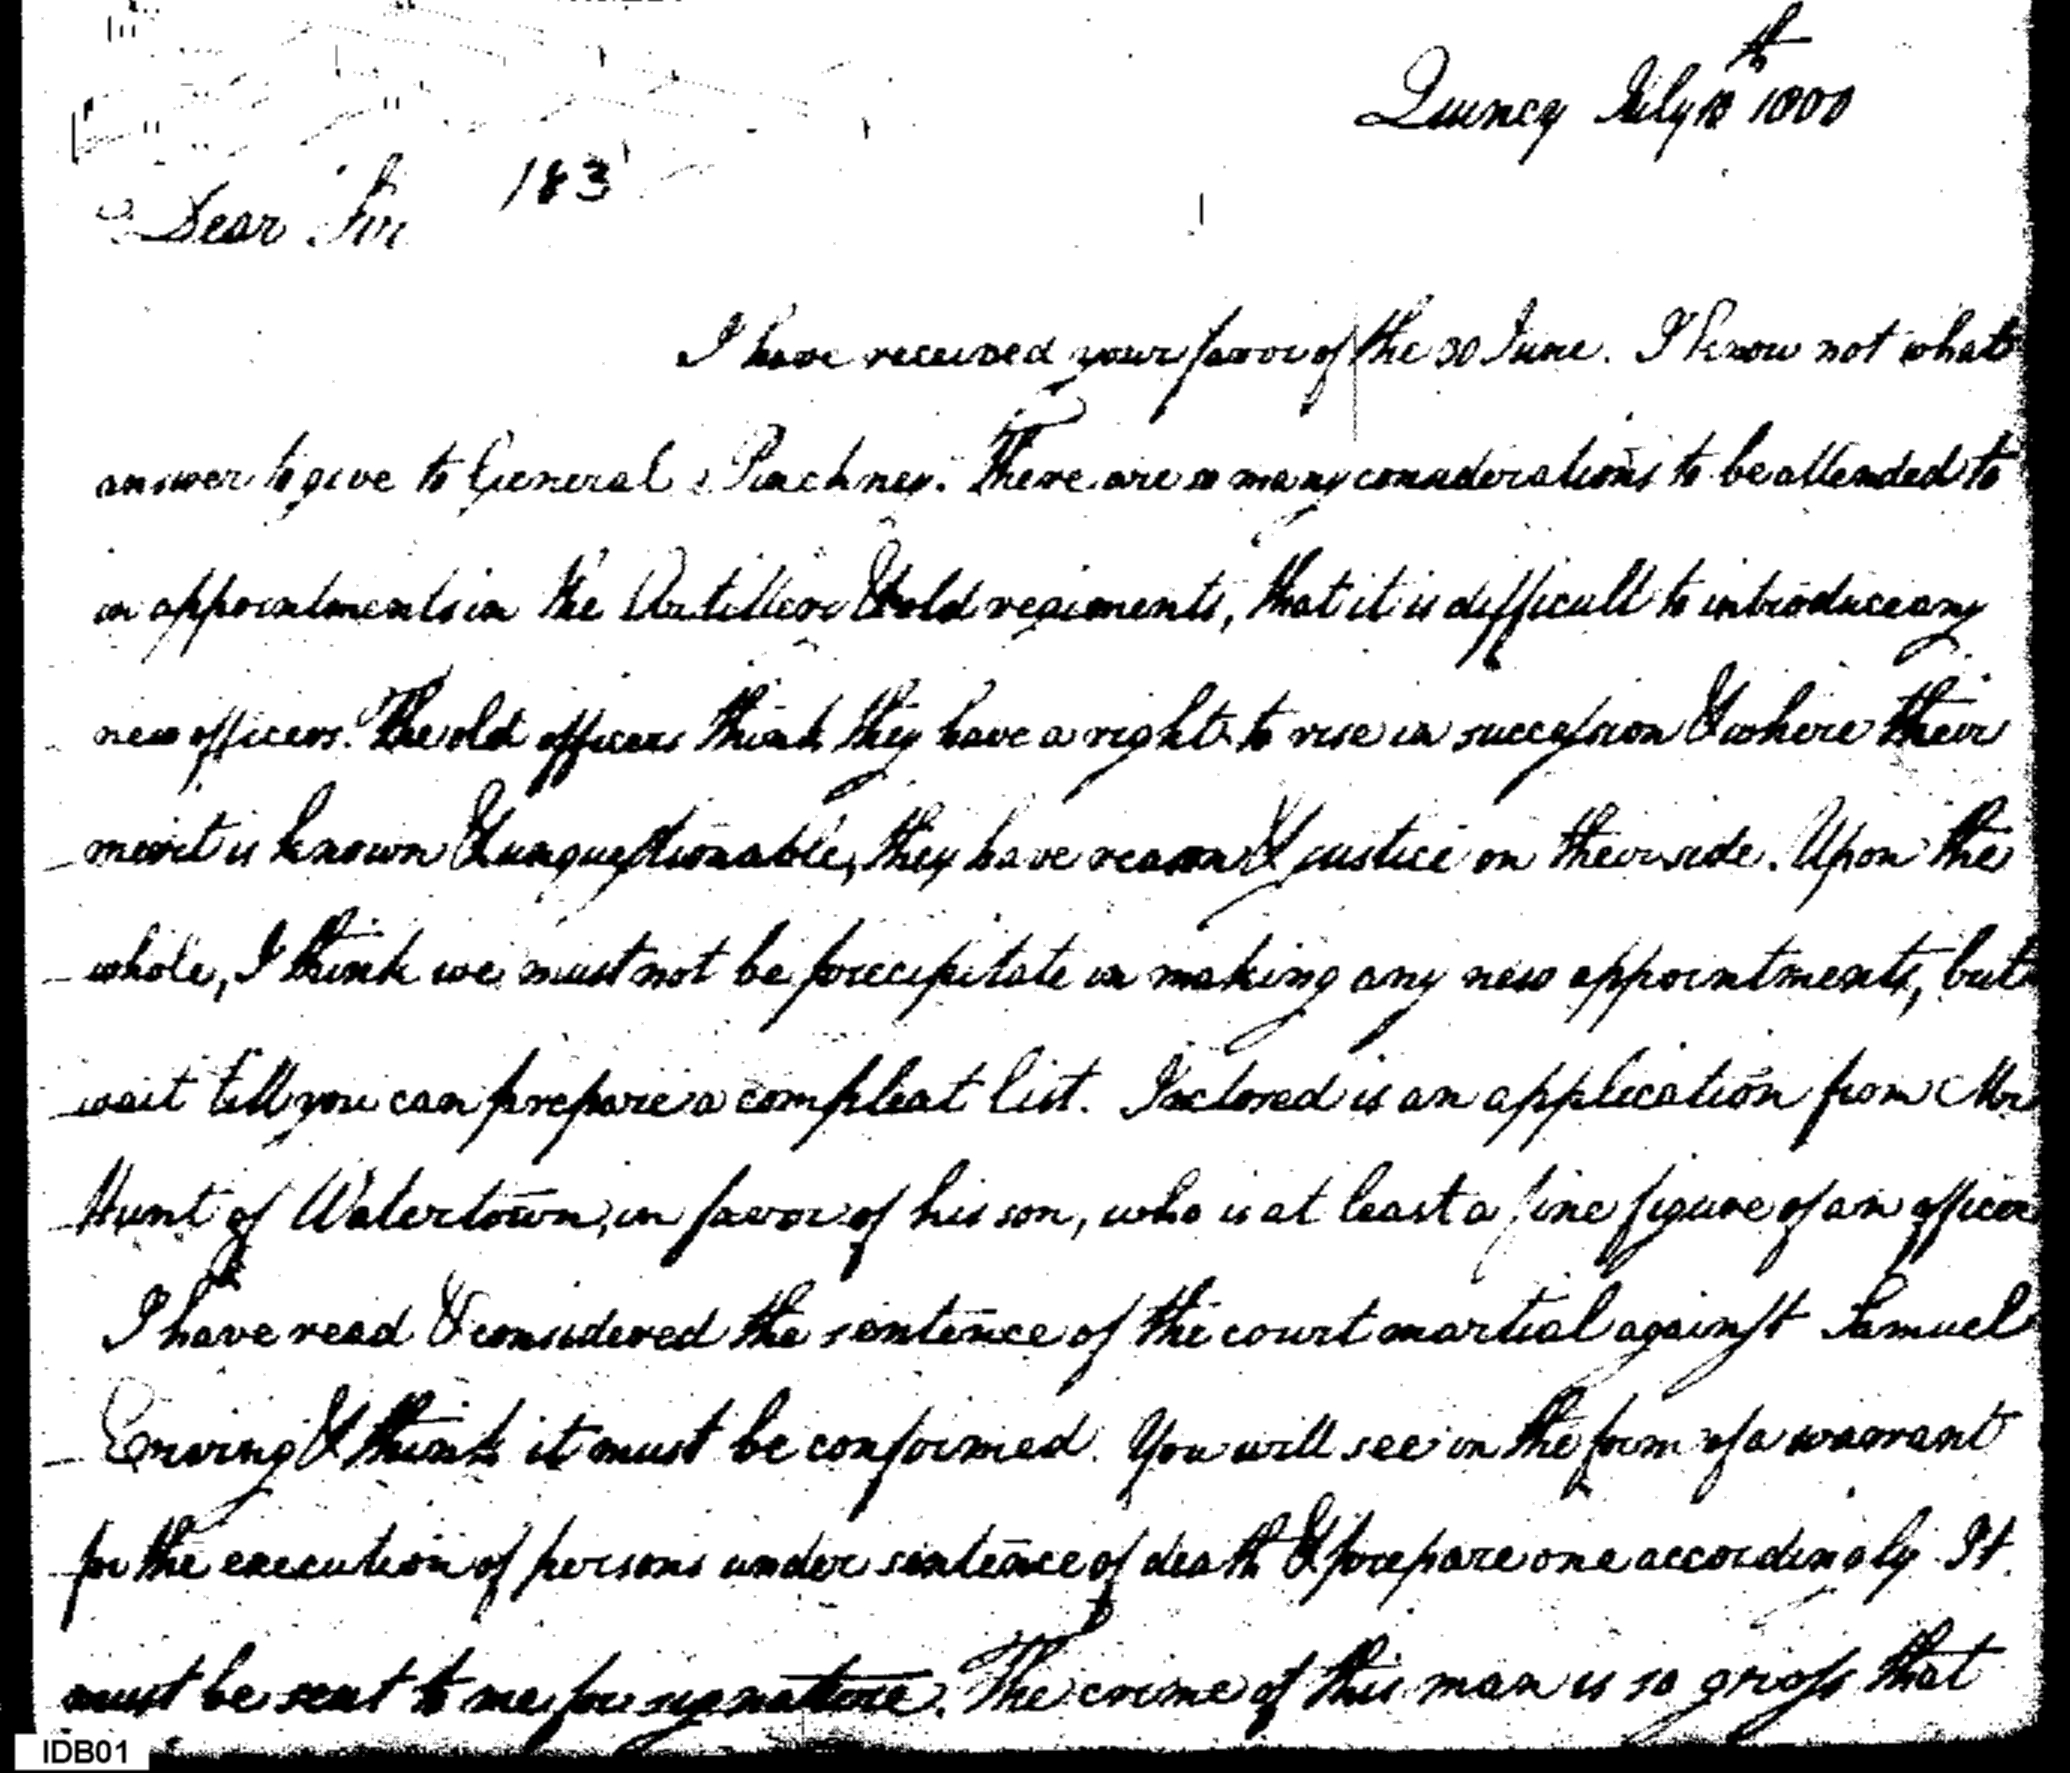 Quincy July 10th 1800
183
Dear Sir
I have received your favor of the 30 June. I know not what
answer to give to General Pinckney. There are so many considerations to be attended to
in appointments in the Artillery & old regiments, that it is difficult to introduce any
new officers. The old officers think they have a right to rise in succession & where their
merit is known & unquestionable, they have reason & justice on their side. Upon the
whole, I think we must not be precipitate in making any new appointments, but
wait till you can prepare a compleat list. Inclosed is an application from Mr
Hunt of Watertown, in favor of his son, who is at least a fine figure of an officer
I have read & considered the sentence of the court martial against Samuel
& think it must be confirmed. You will see in the form of a warrant
for the execution of persons under sentence of death & prepare one accordingly It
must be sent to me for signature. The crime of this man is so gross that
IDB01